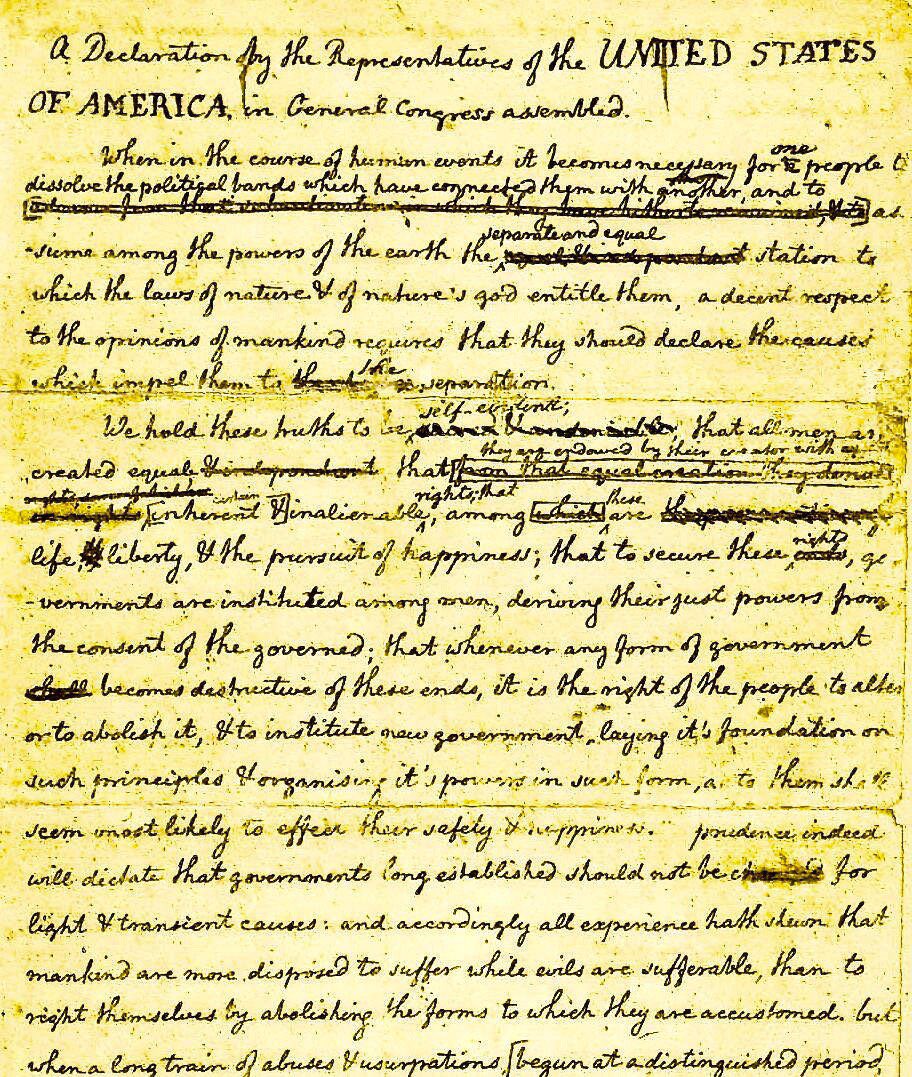 A Declaration by the Representatives of the UNITED STATES
OF AMERICA, in General Congress assembled.
one
When in the course of human events it becomes necessary for people t
dissolve the political bands which have connected them with another, and to
as
separate and equal
-sume among the powers of the earth the station to
which the laws of nature & of nature's god entitle them, a decent respect
to the opinions of mankind requires that they should declare the causes
which impel them to the separation.
self-evident;
We hold these truths to be that all men are
they are endowed by their creator with
created equal & independent that [from that equal creation they derive
certain rights; that these
in rights [inherent &] inalienable, among [which] are
rights
life, liberty, & the pursuit of happiness; that to secure these ends, go
-vernments are instituted among men, deriving their just powers from
the consent of the governed; that whenever any form of government
shall becomes destructive of these ends, it is the right of the people to alter
or to abolish it, & to institute new government, laying it's foundation on
such principles & organising it's powers in such form, as to them shall
seem most likely to effect their safety & happiness. prudence indeed
will dictate that governments long established should not be changed for
light & transient causes: and accordingly all experience hath shewn that
mankind are more disposed to suffer while evils are sufferable, than to
right themselves by abolishing the forms to which they are accustomed. but
when a long train of abuses & usurpations, [begun at a distinguished period,